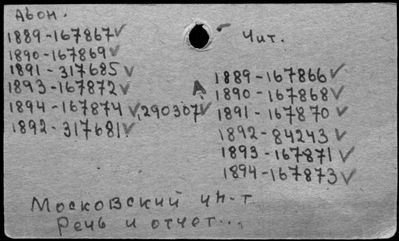 Абон.
1889-167867✓
1890-167869✓
1891-317685✓
1893-167872✓
1894-167874✓, 290307✓
1892-317681✓
Чит.
А
1889-167866✓
1890-167868✓
1891-167870✓
1892-84243✓
1893-167871✓
1894-167873✓
Московский ун-т.
Речь и отчет...